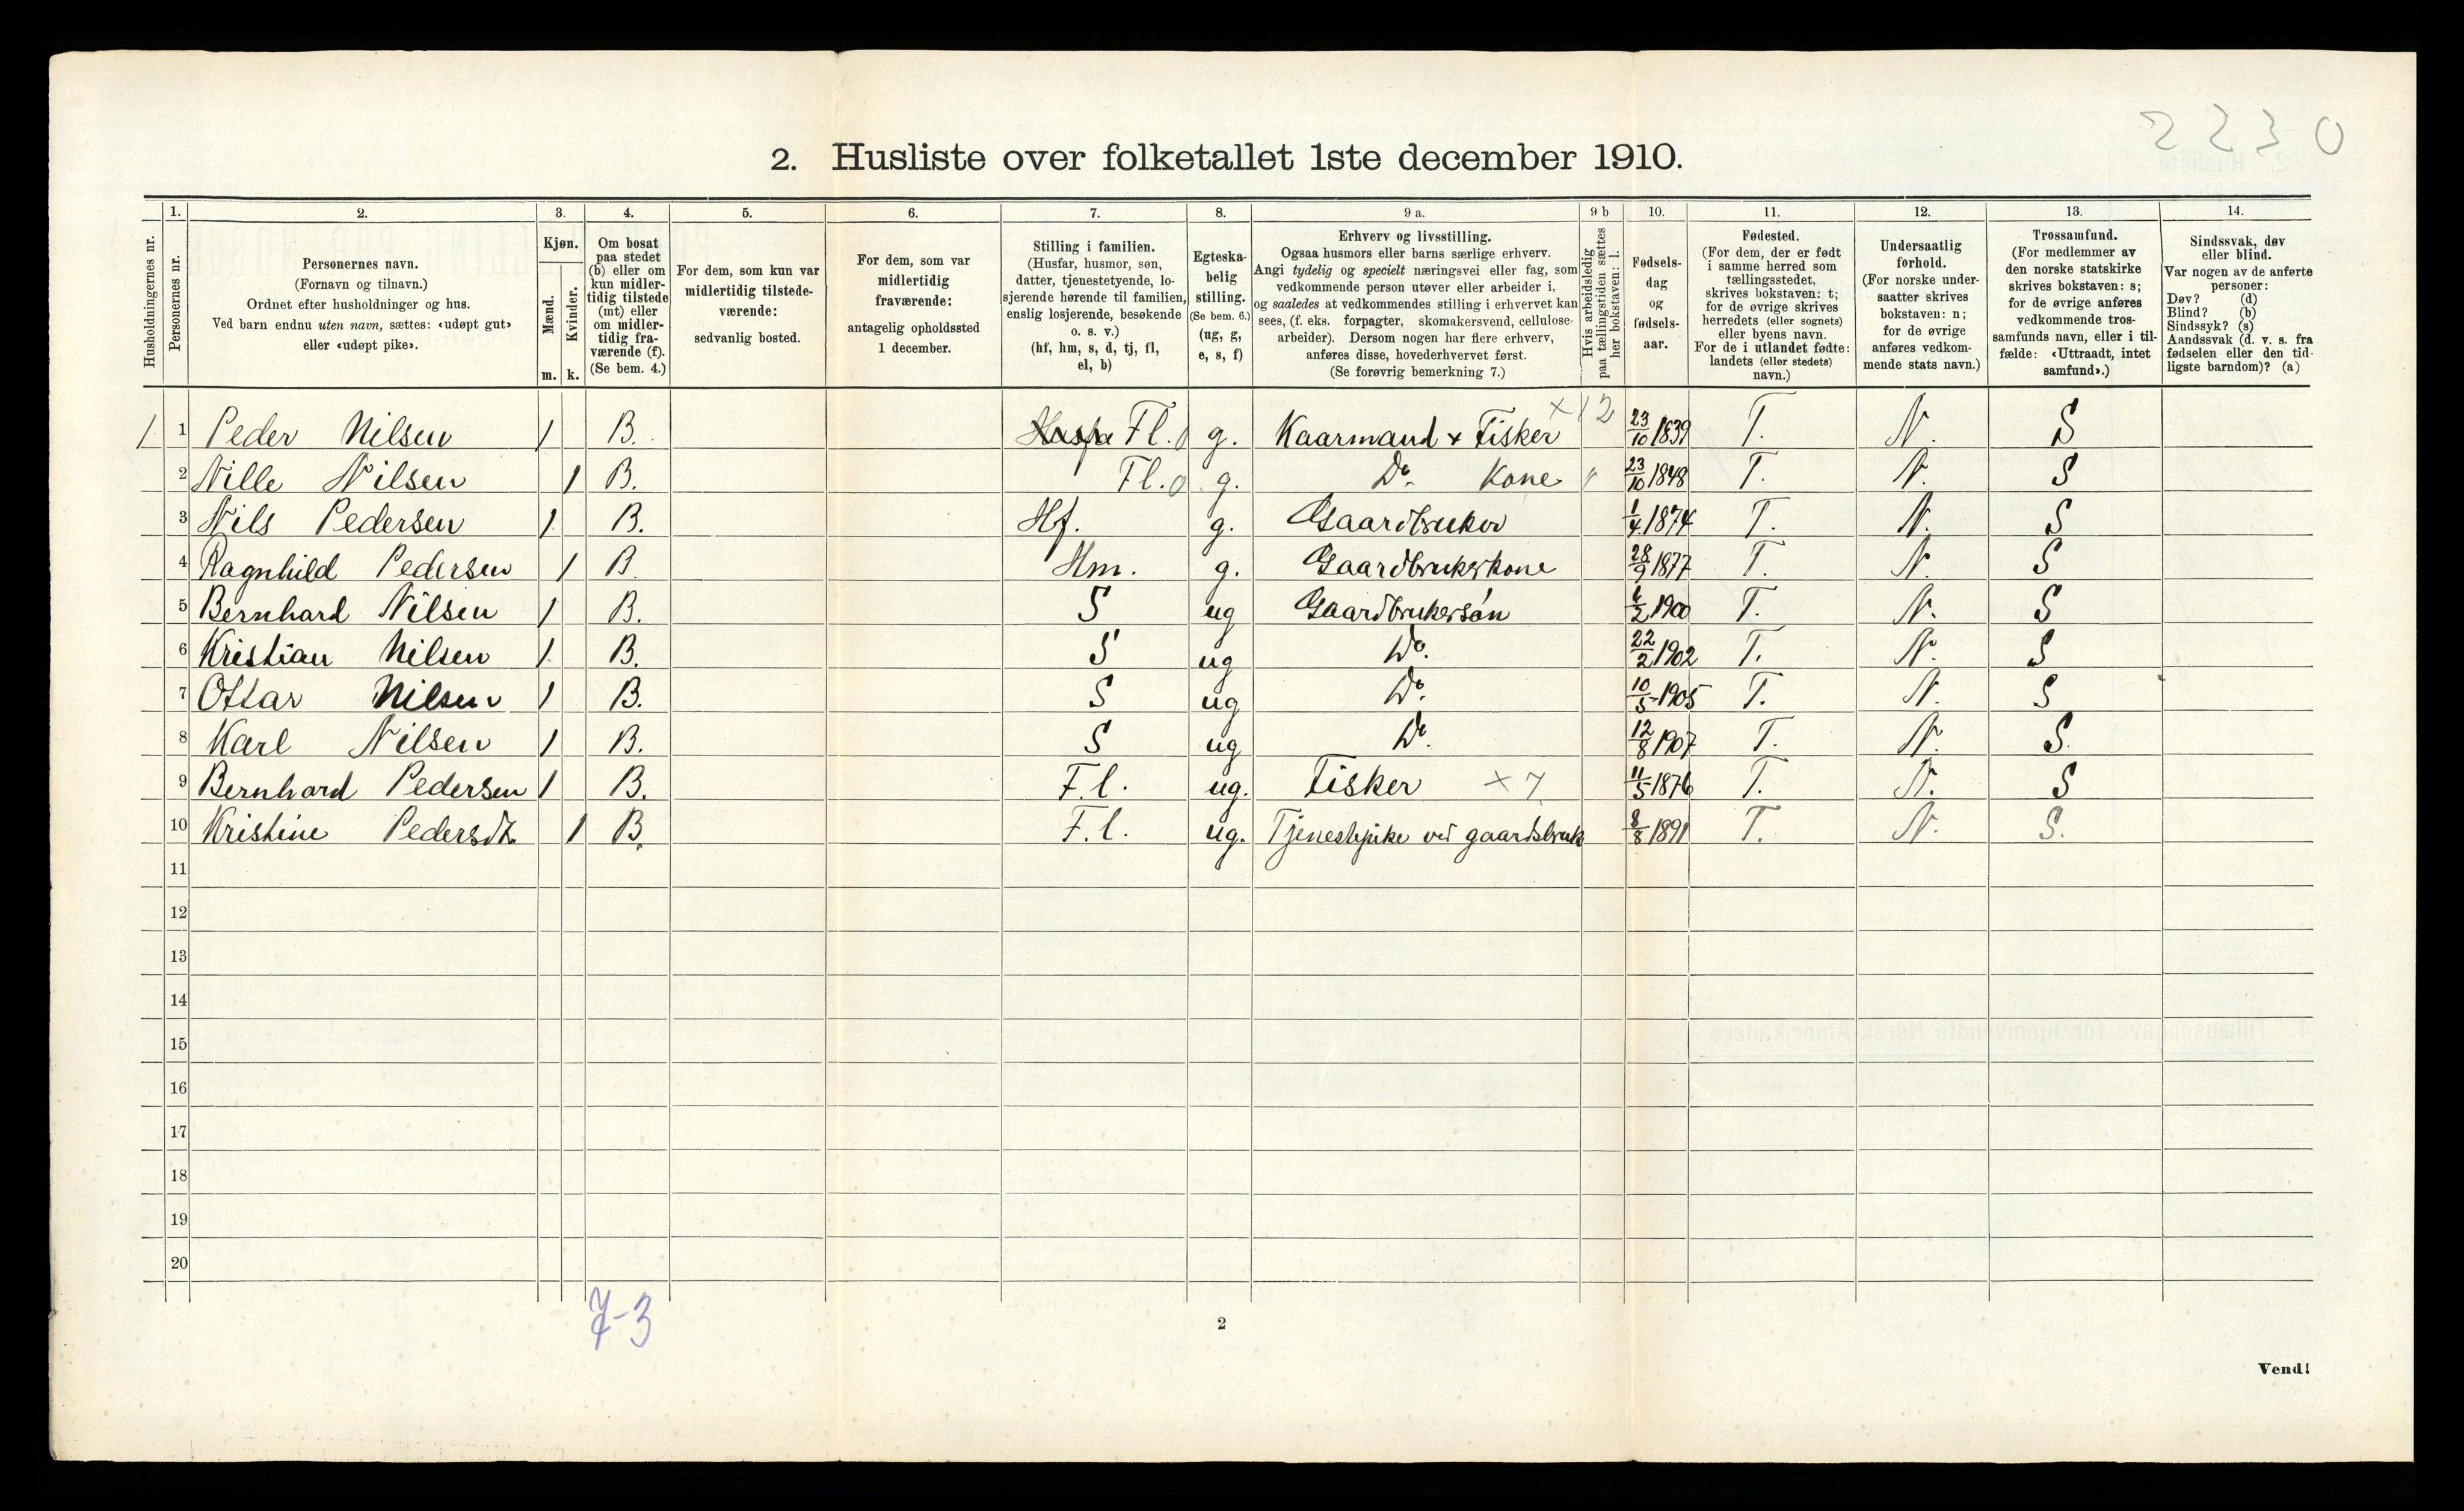 2 2 3 0
2. Husliste over folketallet 1ste december 1910.
Husholdningernes nr.
1. Personernes nr.
2. Personernes navn.
(Fornavn og tilnavn.)
Ordnet efter husholdninger og hus.
Ved barn endnu uten navn, sættes: «udøpt gut»
eller «udøpt pike».
3. Kjøn.
Mænd. m.
Kvinder. k.
4. Om bosat
paa stedet
(b) eller om
kun midler-
tidig tilstede
(mt) eller
om midler-
tidig fra-
værende (f).
(Se bem. 4.)
5. For dem, som kun var
midlertidig tilstede-
værende:
sedvanlig bosted.
6. For dem, som var
midlertidig
fraværende:
antagelig opholdssted
1 december.
7. Stilling i familien.
(Husfar, husmor, søn,
datter, tjenestetyende, lo-
sjerende hørende til familien,
enslig losjerende, besøkende
o. s. v.)
(hf, hm, s, d, tj, fl,
el, b)
8. Egteska-
belig
stilling.
(Se bem. 6.)
(ug, g,
e, s, f)
9 a. Erhverv og livsstilling.
Ogsaa husmors eller barns særlige erhverv.
Angi tydelig og specielt næringsvei eller fag, som
vedkommende person utøver eller arbeider i,
og saaledes at vedkommendes stilling i erhvervet kan
sees, (f. eks. forpagter, skomakersvend, cellulose-
arbeider). Dersom nogen har flere erhverv,
anføres disse, hovederhvervet først.
(Se forøvrig bemerkning 7.)
9 b Hvis arbeidsledig
paa tællingstiden sættes
her bokstaven: l.
10. Fødsels-
dag
og
fødsels-
aar.
11. Fødested.
(For dem, der er født
i samme herred som
tællingsstedet,
skrives bokstaven: t;
for de øvrige skrives
herredets (eller sognets)
eller byens navn.
For de i utlandet fødte:
landets (eller stedets)
navn.)
12. Undersaatlig
forhold.
(For norske under-
saatter skrives
bokstaven: n;
for de øvrige
anføres vedkom-
mende stats navn.)
13. Trossamfund.
(For medlemmer av
den norske statskirke
skrives bokstaven: s;
for de øvrige anføres
vedkommende tros-
samfunds navn, eller i til-
fælde: «Uttraadt, intet
samfund».)
14. Sindssvak, døv
eller blind.
Var nogen av de anførte
personer:
Døv? (d)
Blind? (b)
Sindssyk? (s)
Aandssvak (d. v. s. fra
fødselen eller den tid-
ligste barndom)? (a)
1 1 Peder Nilsen 1 B. Fl. g. Kaarmand + Fisker x 12 23/10 1839 T. N. S
2 Nille Nilsen 1 B. Fl. g. Do. Kone 23/10 1848 T. N. S
3 Nils Pedersen 1 B. Hf. g. Gaardbruker 1/4 1874 T. N. S
4 Ragnhild Pedersen 1 B. Hm. g. Gaardbrukerkone 28/9 1877 T. N. S
5 Bernhard Nilsen 1 B. S ug Gaardbrukersøn 6/2 1900 T. N. S
6 Kristian Nilsen 1 B. S ug Do. 22/2 1902 T. N. S
7 Ottar Nilsen 1 B. S ug Do. 10/5 1905 T. N. S
8 Karl Nilsen 1 B. S ug Do. 12/8 1907 T. N. S.
9 Bernhard Pedersen 1 B. F.l. ug. Fisker x 7 11/5 1876 T. N. S
10 Kristine Pedersdt. 1 B. F.l. ug. Tjenestepike ved gaardsbruk 8/8 1891 T. N. S.
11
12
13
14
15
16
17
18
19
20
7-3
2
Vend!